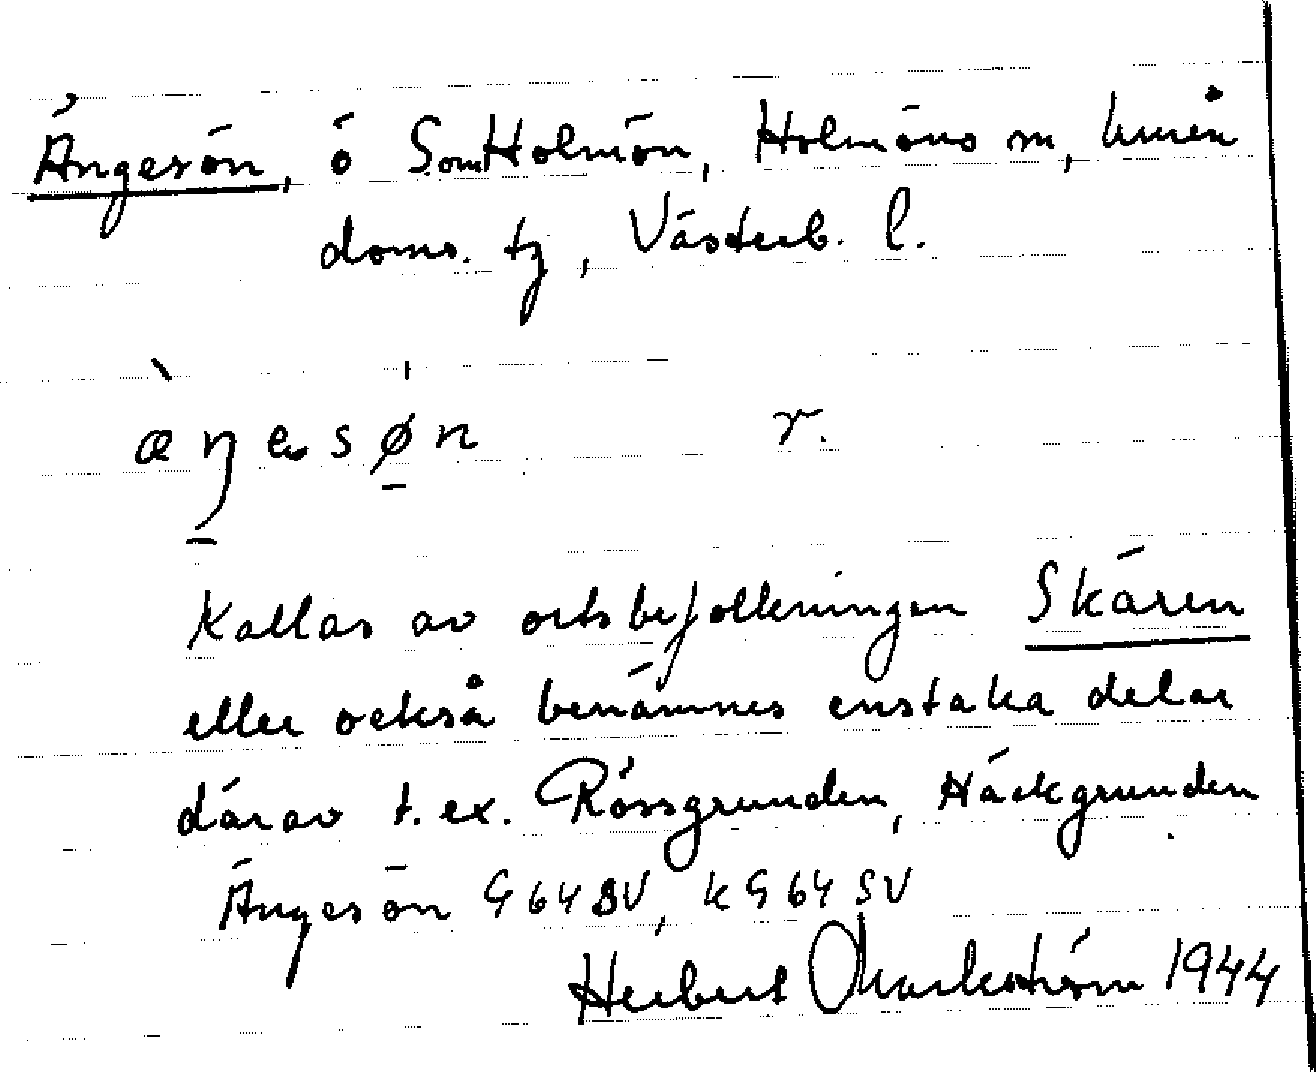 Ängesön, ö SomHolmön, Holmöns sn, Umeå
doms. tg, Västerb. l.
æŋesøn r.
Kallas av ortsbefolkningen Skären
eller också benämnes enstaka delar
därav t. ex. Rössgrunden, Häckgrunden
Ängesön G 64 SV, k G 64 SV
Herbert Markström 1944